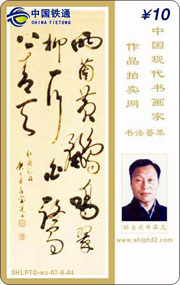 中国铁通
CHINA TIETONG
¥10
中国现代书画家
作品拍卖网
书法荟萃
两个黄鹂鸣翠
柳一行白鹭
上青天
www.shlptd2.com
SHLPTD-wz-07-8-44